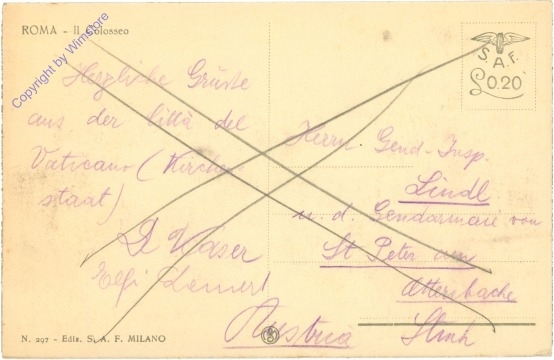 ROMA - Il Colosseo
Copyright by Wimstore
S. A. F.
L 0.20
Herzliche Grüsse
aus der Città del
Vaticano (Kirchen
staat).
Elfi
Herrn Gend-Insp.
Lindl
u. d. Gendarmerie von
St Peter am
Ottersbache
Austria
N. 297 - Ediz. S. A. F. MILANO